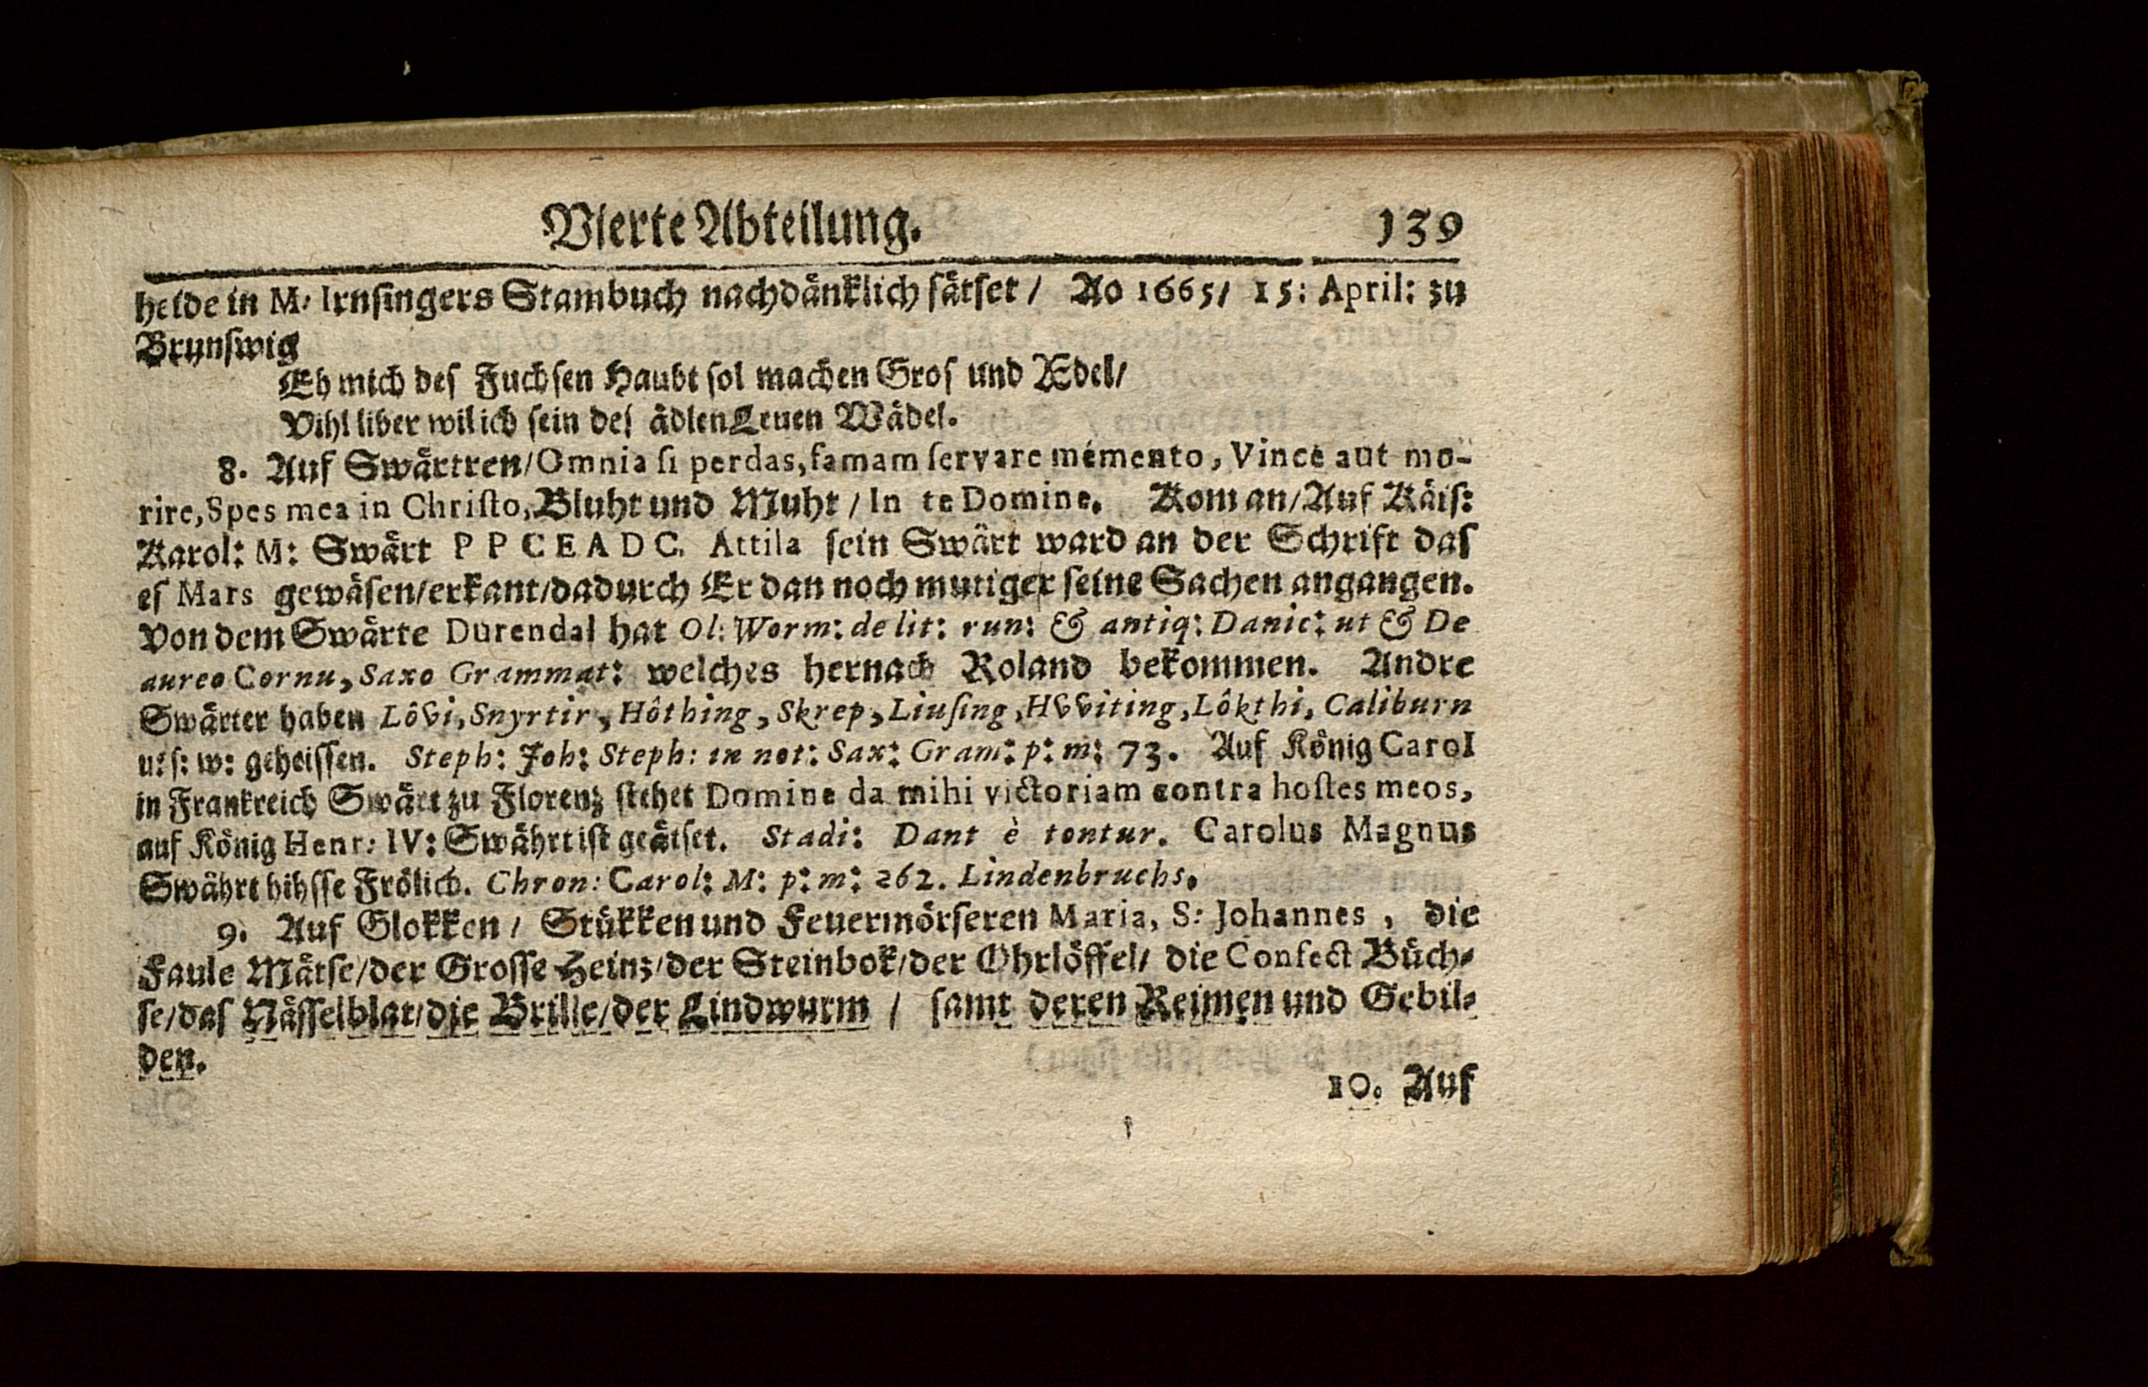 Vierte Abteilung. 139
heide in M. Irnsingers Stambuch nachdänklich sätset / Ao 1665 / 15: April: zu
Brunswig
Eh mich des Fuchsen Haubt sol machen Gros und Ædel /
Vihl liber wil ich sein des ädlen Leuen Wädel.
8. Auf Swärtren / Omnia si perdas, famam servare memento, Vince aut mo-
rire, Spes mea in Christo, Bluht und Muht / In te Domine. Kom an / Auf Käis:
Karol: M: Swärt P P C E A D C. Attila sein Swärt ward an der Schrift das
es Mars gewäsen / erkant / dadurch Er dan noch mutiger seine Sachen angangen.
Von dem Swärte Durendal hat Ol: Worm: de lit: run: & antiq: Danic: ut & De
aureo Cornu, Saxo Grammat: welches hernach Roland bekommen. Andre
Swärter haben Lôvi, Snyrtir, Hôthing, Skrep, Liusing, Hvviting, Lôkthi, Caliburn
u: s: w: geheissen. Steph: Joh: Steph: in not: Sax: Gram: p: m: 73. Auf König Carol
in Frankreich Swärt zu Florenz stehet Domine da mihi victoriam contra hostes meos,
auf König Henr: IV: Swährt ist geätset. Stadi: Dant è tontur. Carolus Magnus
Swährt hihsse Frölich. Chron: Carol: M: p: m: 262. Lindenbruchs.
9. Auf Glokken / Stükken und Feuermörseren Maria, S: Johannes, die
Faule Mätse / der Grosse Heinz / der Steinbok / der Ohrlöffel / die Confect Büch-
se / das Nässelblat / die Brille / der Lindwurm / samt deren Reimen und Gebil-
den.
10. Auf